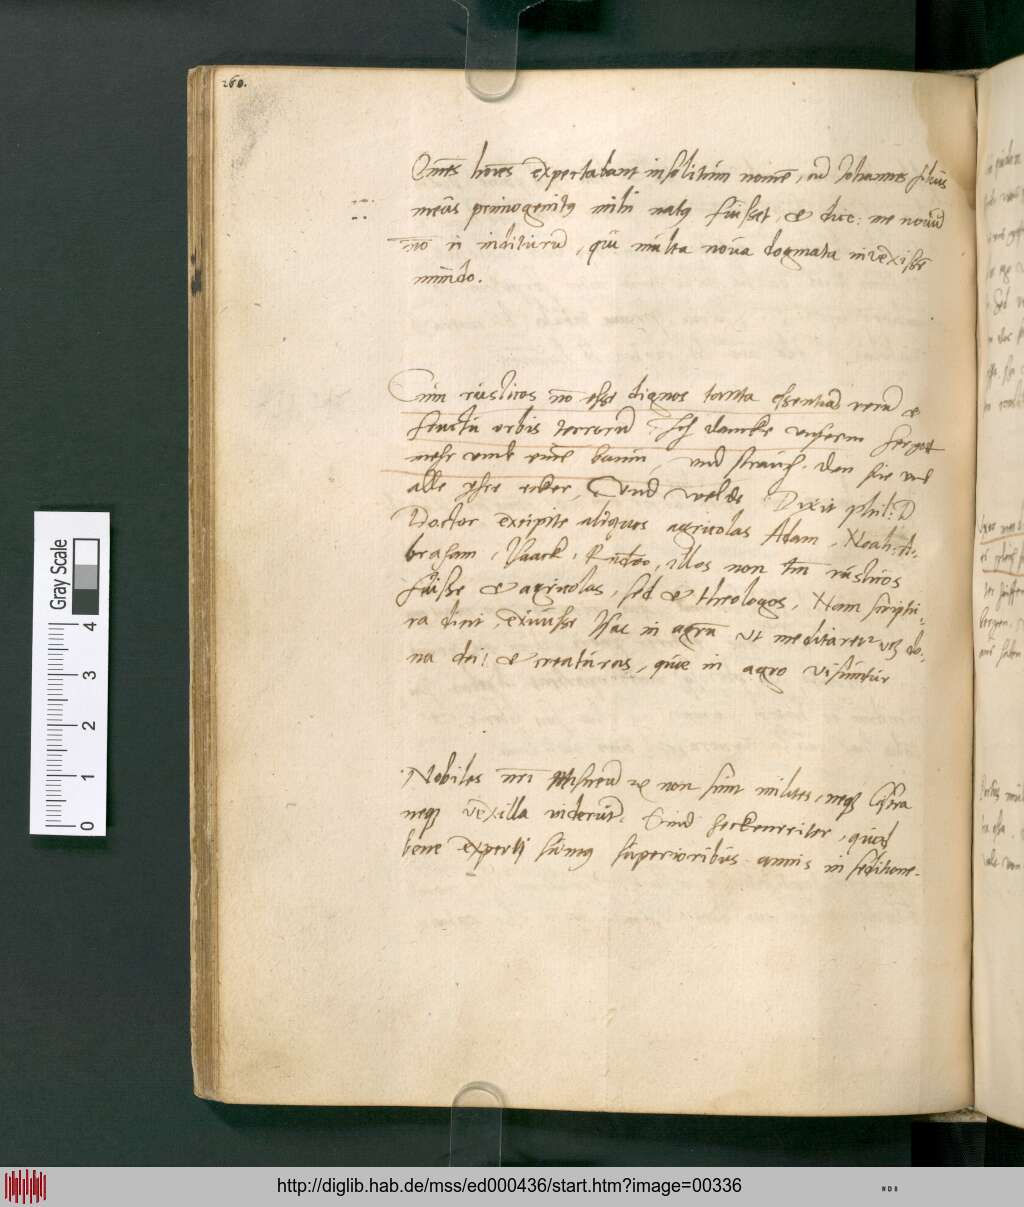 260.
Omēs hoīes expectabant insolitum nomē, cū Johannes filius
meus primogenitus mihi natus fuisset, & dice: me novū
nō ei inditurū, qui multa nova dogmata invexissē
mundo.
Cum rusticos nō esse dignos tanta essentia rerū &
fructu orbis terrarū. Ich dancke unserm hergot
mehr umb eine baum, und strauch. den sie umb
alle yhre ecker, Und welde Dixit phil: D
Doctor excipite aliquos agricolas Adam, Noah. A-
braham, Isaack. Rndeo, illos non tm rusticos
fuisse & agricolas, sed & theologos, Nam scriptu-
ra dint, exivisse Isac in agrū ut meditaret vz do-
na dei & creaturas, quae in agro visuntur
Nobiles nri Misnen non sunt milites, neque castra
neque vexilla viderūt. Sind heckenreiter, quod
bene experti sumus superioribus annis in seditione.
Gray Scale
0 1 2 3 4
http://diglib.hab.de/mss/ed000436/start.htm?image=00336